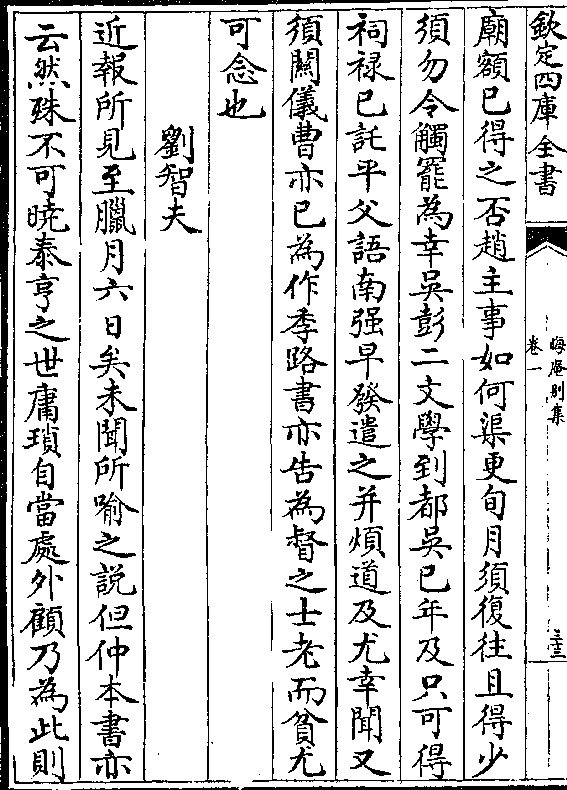 欽定四庫全書
晦庵別集
卷一
三十三
廟額已得之否趙主事如何渠更旬月須復往且得少
須勿令觸罷為幸吳彭二文學到都吳已年及只可得
祠禄已託平父語南强早發遣之并煩道及尤幸聞又
須關儀曹亦已為作季路書亦告為督之士老而貧尤
可念也
劉智夫
近報所見至臘月六日矣未聞所喻之説但仲本書亦
云然殊不可曉泰亨之世庸瑣自當處外顧乃為此則